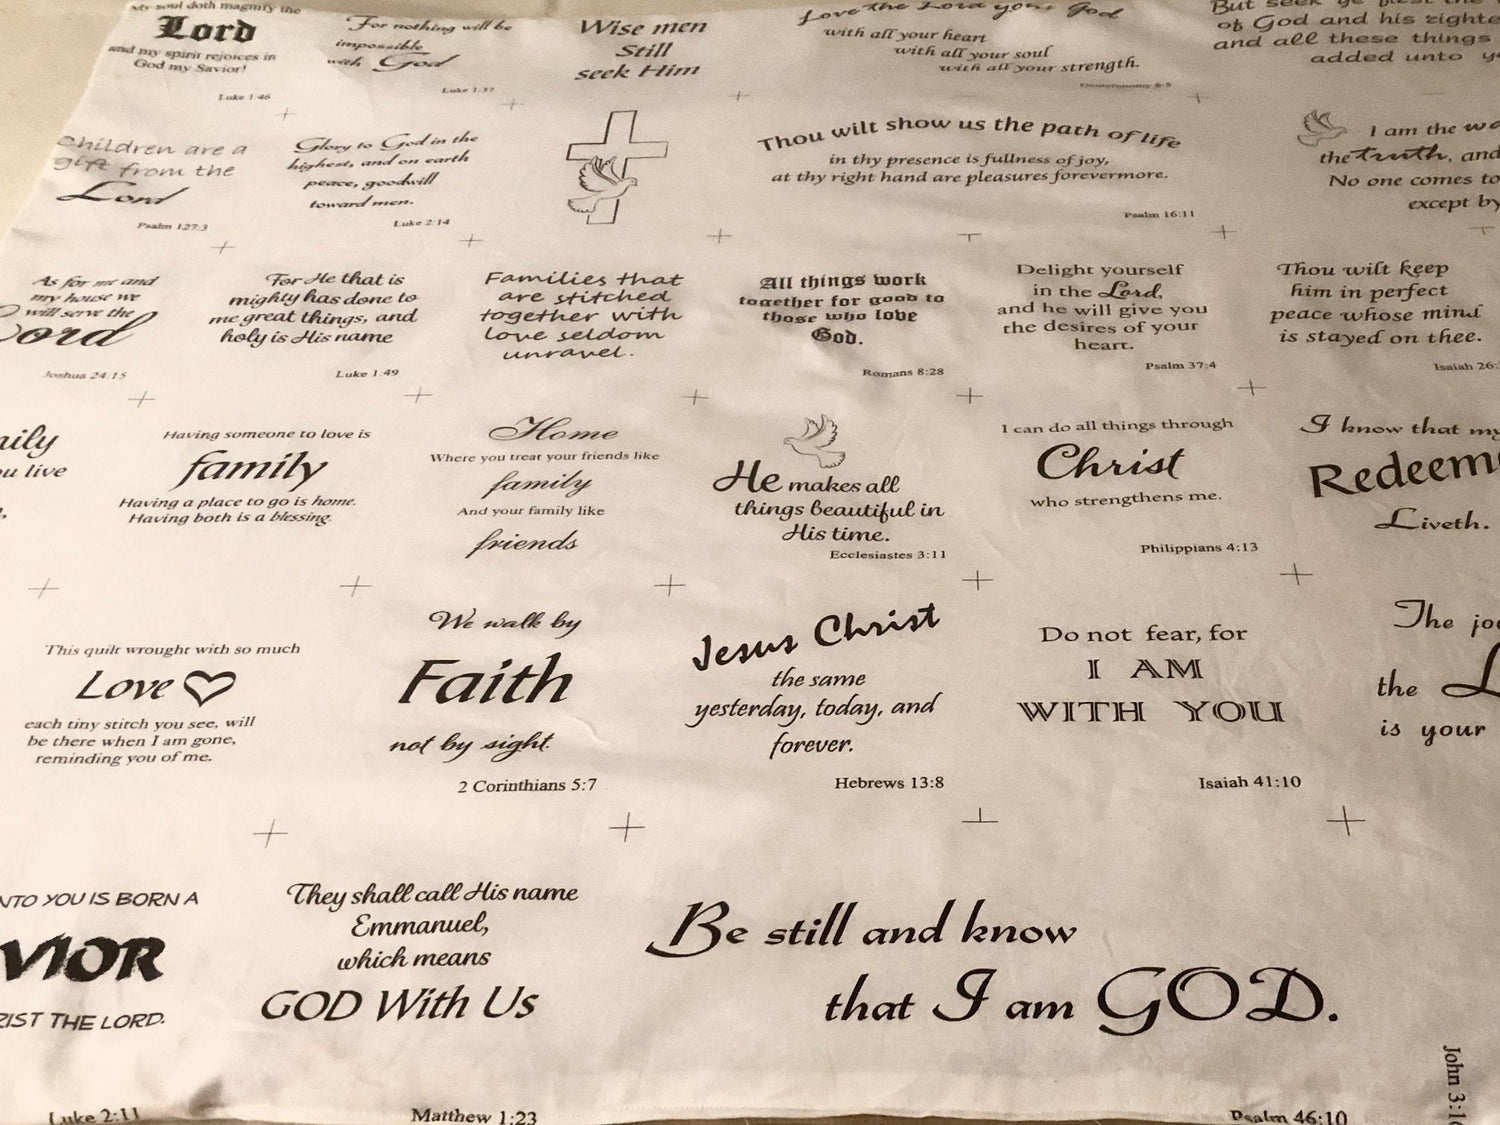 My soul doth magnify the
Lord
and my spirit rejoices in
God my Savior!
Luke 1:46
For nothing will be
impossible
with God
Luke 1:37
Wise men
Still
seek Him
Love the Lord your God
with all your heart
with all your soul
with all your strength.
Deuteronomy 6:5
But seek ye first the
of God and his righte
and all these things
added unto y
Children are a
gift from the
Lord
Psalm 127:3
Glory to God in the
highest, and on earth
peace, goodwill
toward men.
Luke 2:14
Thou wilt show us the path of life
in thy presence is fullness of joy,
at thy right hand are pleasures forevermore.
Psalm 16:11
I am the wa
the truth, and
No one comes to
except by
As for me and
my house we
will serve the
Lord
Joshua 24:15
For He that is
mighty has done to
me great things, and
holy is His name
Luke 1:49
Families that
are stitched
together with
love seldom
unravel.
All things work
together for good to
those who love
God.
Romans 8:28
Delight yourself
in the Lord,
and he will give you
the desires of your
heart.
Psalm 37:4
Thou wilt keep
him in perfect
peace whose mind
is stayed on thee.
Isaiah 26:
nily
ou live
Having someone to love is
family
Having a place to go is home.
Having both is a blessing.
Home
Where you treat your friends like
family
And your family like
friends
He makes all
things beautiful in
His time.
Ecclesiastes 3:11
I can do all things through
Christ
who strengthens me.
Philippians 4:13
I know that my
Redeem
Liveth.
This quilt wrought with so much
Love
each tiny stitch you see, will
be there when I am gone,
reminding you of me.
We walk by
Faith
not by sight.
2 Corinthians 5:7
Jesus Christ
the same
yesterday, today, and
forever.
Hebrews 13:8
Do not fear, for
I AM
WITH YOU
Isaiah 41:10
The jo
the L
is your
NTO YOU IS BORN A
VIOR
RIST THE LORD.
Luke 2:11
They shall call His name
Emmanuel,
which means
GOD With Us
Matthew 1:23
Be still and know
that I am GOD.
Psalm 46:10
John 3:16